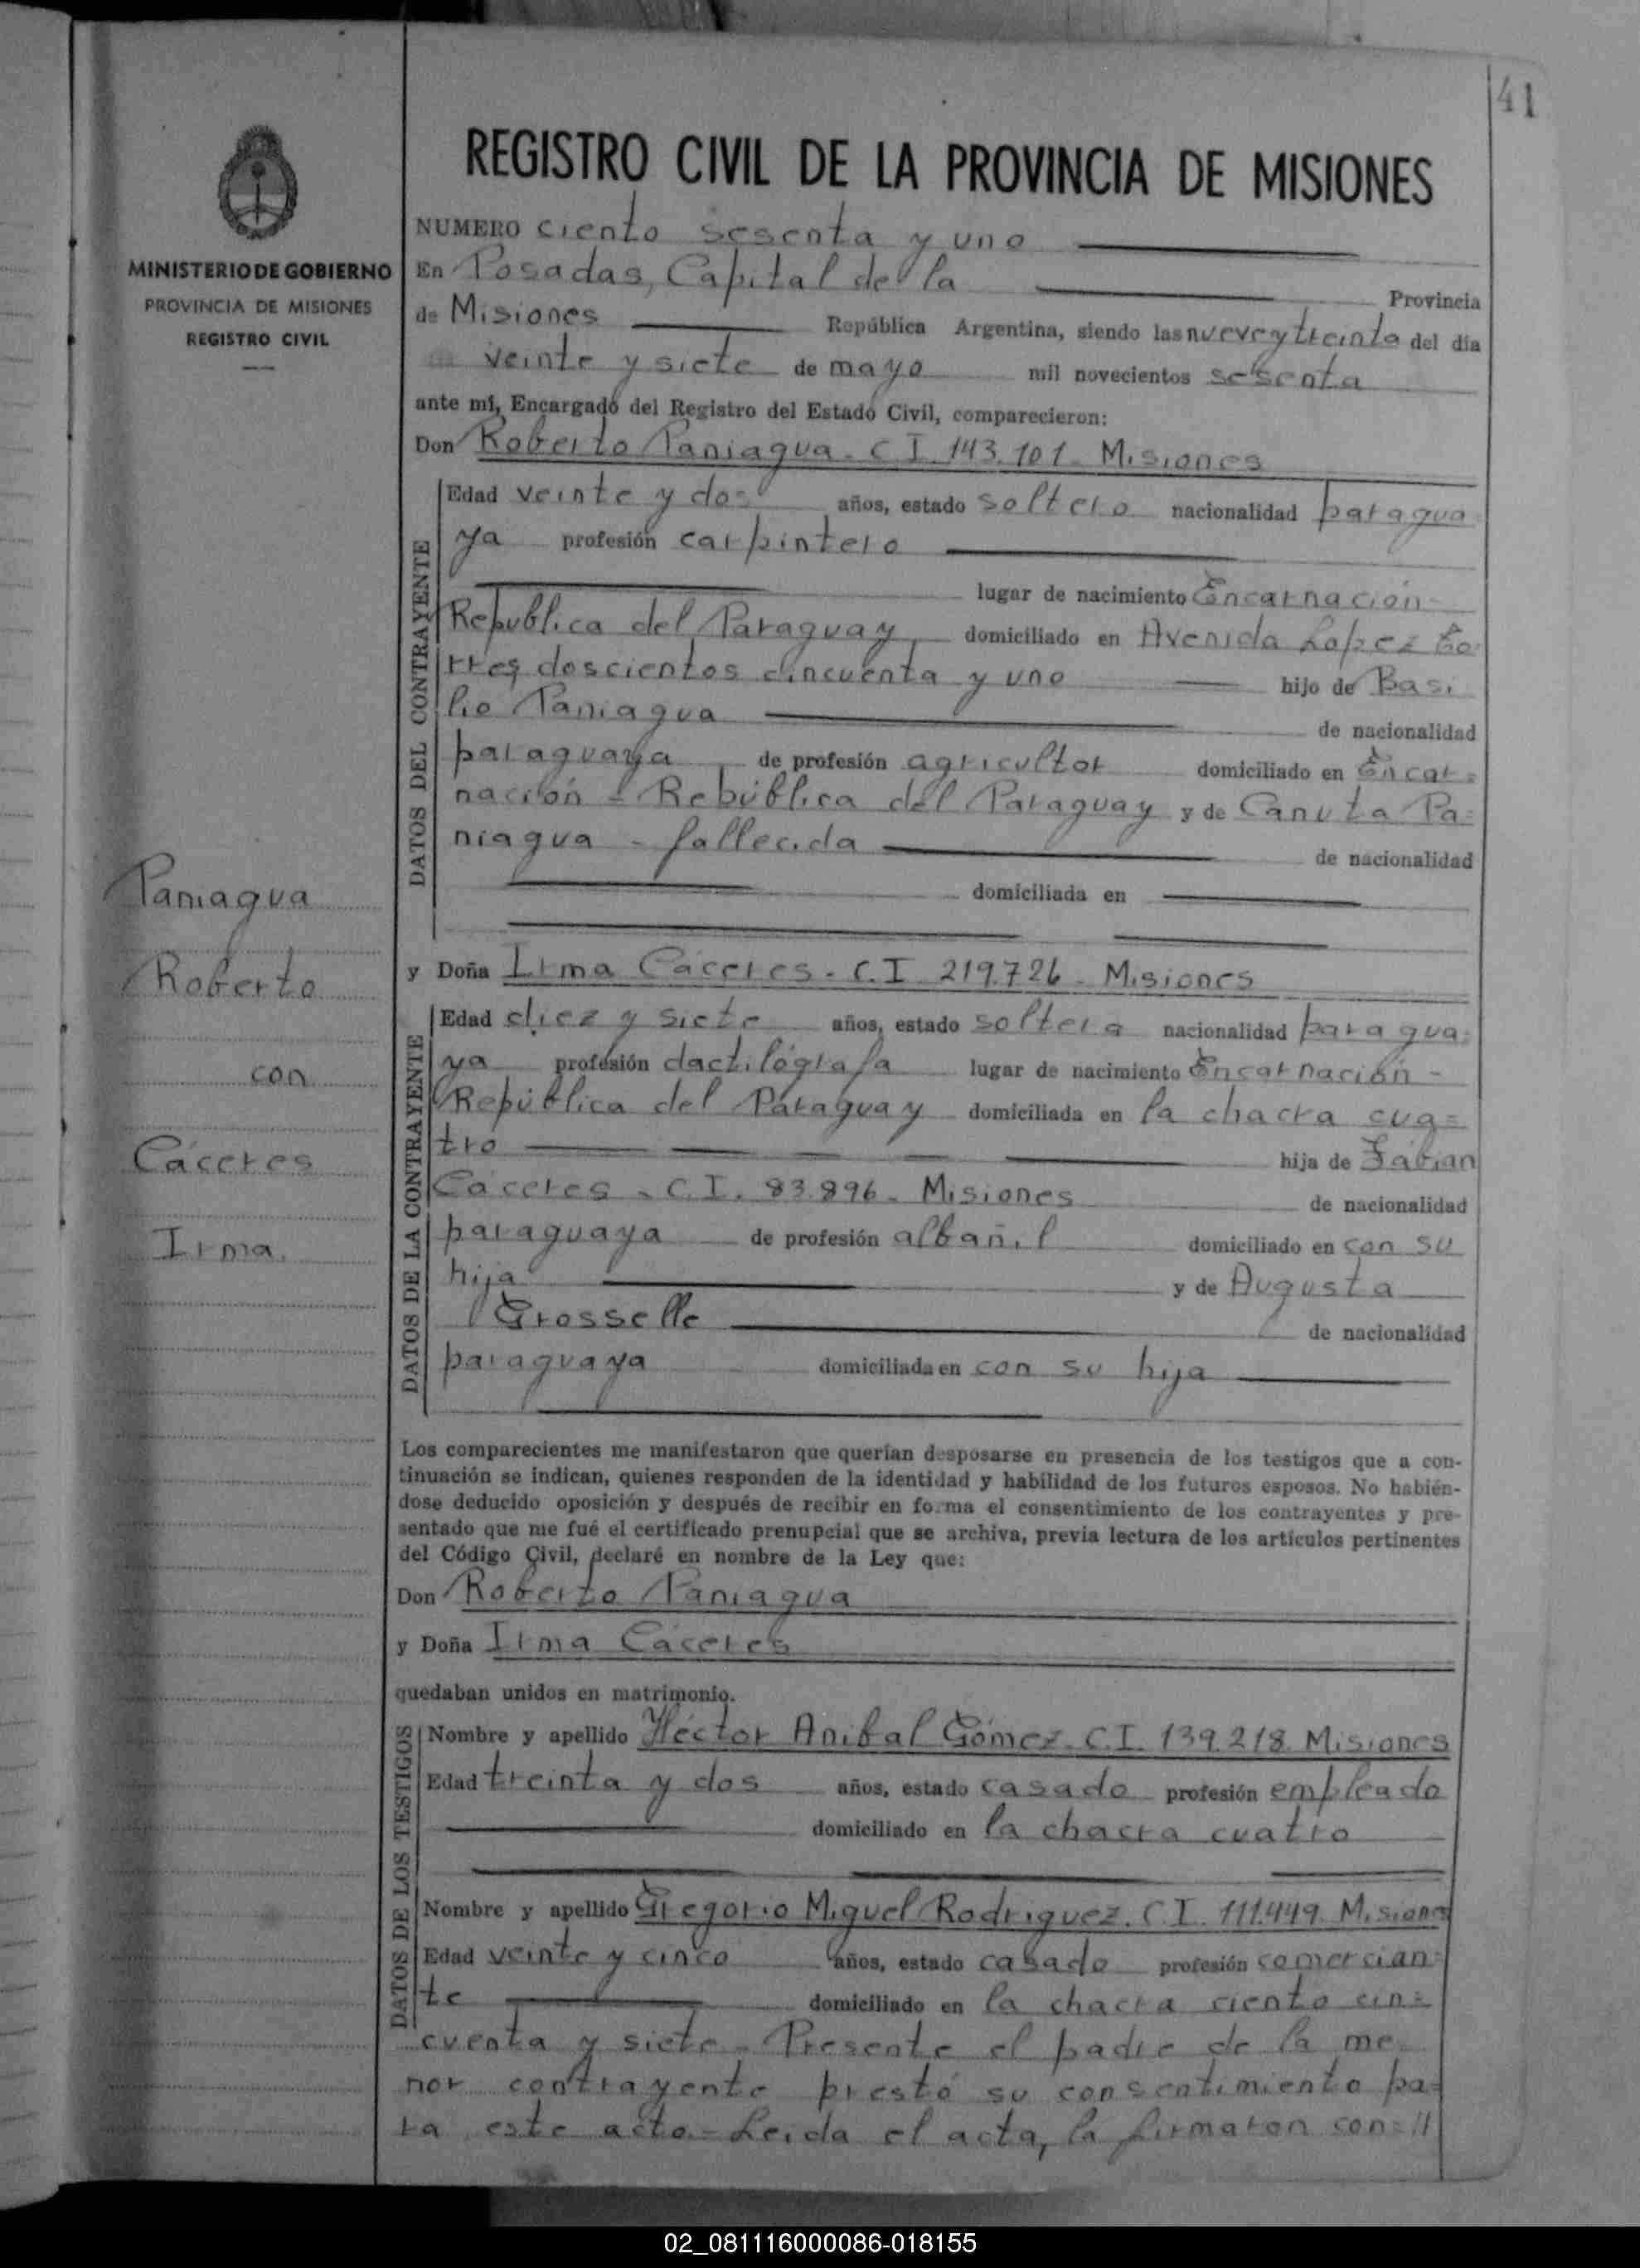 41
MINISTERIO DE GOBIERNO
PROVINCIA DE MISIONES
REGISTRO CIVIL
Paniagua
Roberto
con
Cáceres
Irma.
REGISTRO CIVIL DE LA PROVINCIA DE MISIONES
NUMERO ciento sesenta y uno
En Posadas, Capital de la Provincia
de Misiones República Argentina, siendo las nueve y treinta del día
veinte y siete de mayo mil novecientos sesenta
ante mí, Encargado del Registro del Estado Civil, comparecieron:
Don Roberto Paniagua - C I. 143.101 - Misiones
DATOS DEL CONTRAYENTE
Edad veinte y dos años, estado soltero nacionalidad paragua=
ya profesión carpintero
lugar de nacimiento Encarnación -
República del Paraguay domiciliado en Avenida Lopez To
rres doscientos cincuenta y uno hijo de Basi
lio Paniagua de nacionalidad
paraguaya de profesión agricultor domiciliado en Encar=
nación - República del Paraguay y de Canuta Pa=
niagua - fallecida de nacionalidad
domiciliada en
y Doña Irma Cáceres - C.I. 219.726 - Misiones
DATOS DE LA CONTRAYENTE
Edad diez y siete años, estado soltera nacionalidad paragua=
ya profesión dactilógrafa lugar de nacimiento Encarnación -
República del Paraguay domiciliada en la chacra cua=
tro hija de Fabian
Cáceres - C.I. 83.896 - Misiones de nacionalidad
paraguaya de profesión albañil domiciliado en con su
hija y de Augusta
Grosselle de nacionalidad
paraguaya domiciliada en con su hija
Los comparecientes me manifestaron que querían desposarse en presencia de los testigos que a con-
tinuación se indican, quienes responden de la identidad y habilidad de los futuros esposos. No habién-
dose deducido oposición y después de recibir en forma el consentimiento de los contrayentes y pre-
sentado que me fué el certificado prenupcial que se archiva, previa lectura de los artículos pertinentes
del Código Civil, declaré en nombre de la Ley que:
Don Roberto Paniagua
y Doña Irma Cáceres
quedaban unidos en matrimonio.
DATOS DE LOS TESTIGOS
Nombre y apellido Héctor Anibal Gómez - C.I. 139.218 Misiones
Edad treinta y dos años, estado casado profesión empleado
domiciliado en la chacra cuatro
Nombre y apellido Gregorio Miguel Rodriguez. C I. 111.449 Misiones
Edad veinte y cinco años, estado casado profesión comercian=
te domiciliado en la chacra ciento cin=
cuenta y siete - Presente el padre de la me=
nor contrayente prestó su consentimiento pa=
ra este acto.- Leida el acta, la firmaron con=//
02_081116000086-018155